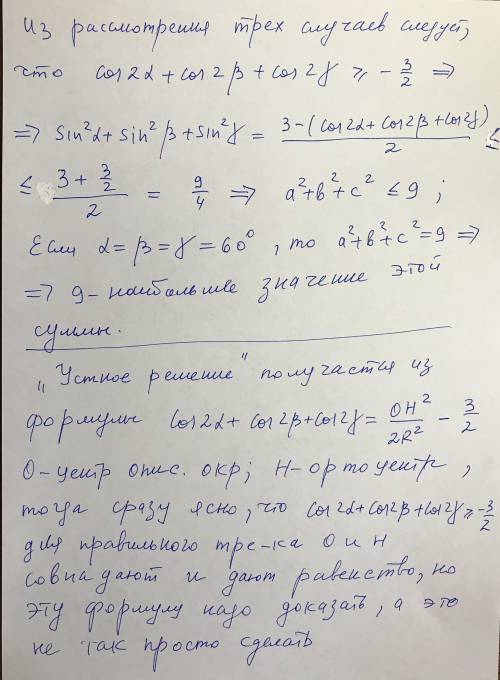 Из рассмотрения трех случаев следует,
что cos2α + cos2β + cos2γ ≥ -3/2 ⇒
⇒ sin²α + sin²β + sin²γ = (3-(cos2α + cos2β + cos2γ))/2 ≤
≤ (3 + 3/2)/2 = 9/4 ⇒ a²+b²+c² ≤ 9;
Если α=β=γ=60°, то a²+b²+c²=9 ⇒
⇒ 9 - наибольшее значение этой
суммы.
„Устное решение" получается из
формулы cos2α + cos2β + cos2γ = OH²/2R² - 3/2
O-центр опис. окр; H-ортоцентр,
тогда сразу ясно, что cos2α+cos2β+cos2γ ≥ -3/2
для правильного тре-ка O и H
совпадают и дают равенство, но
эту формулу надо доказать, а это
не так просто сделать